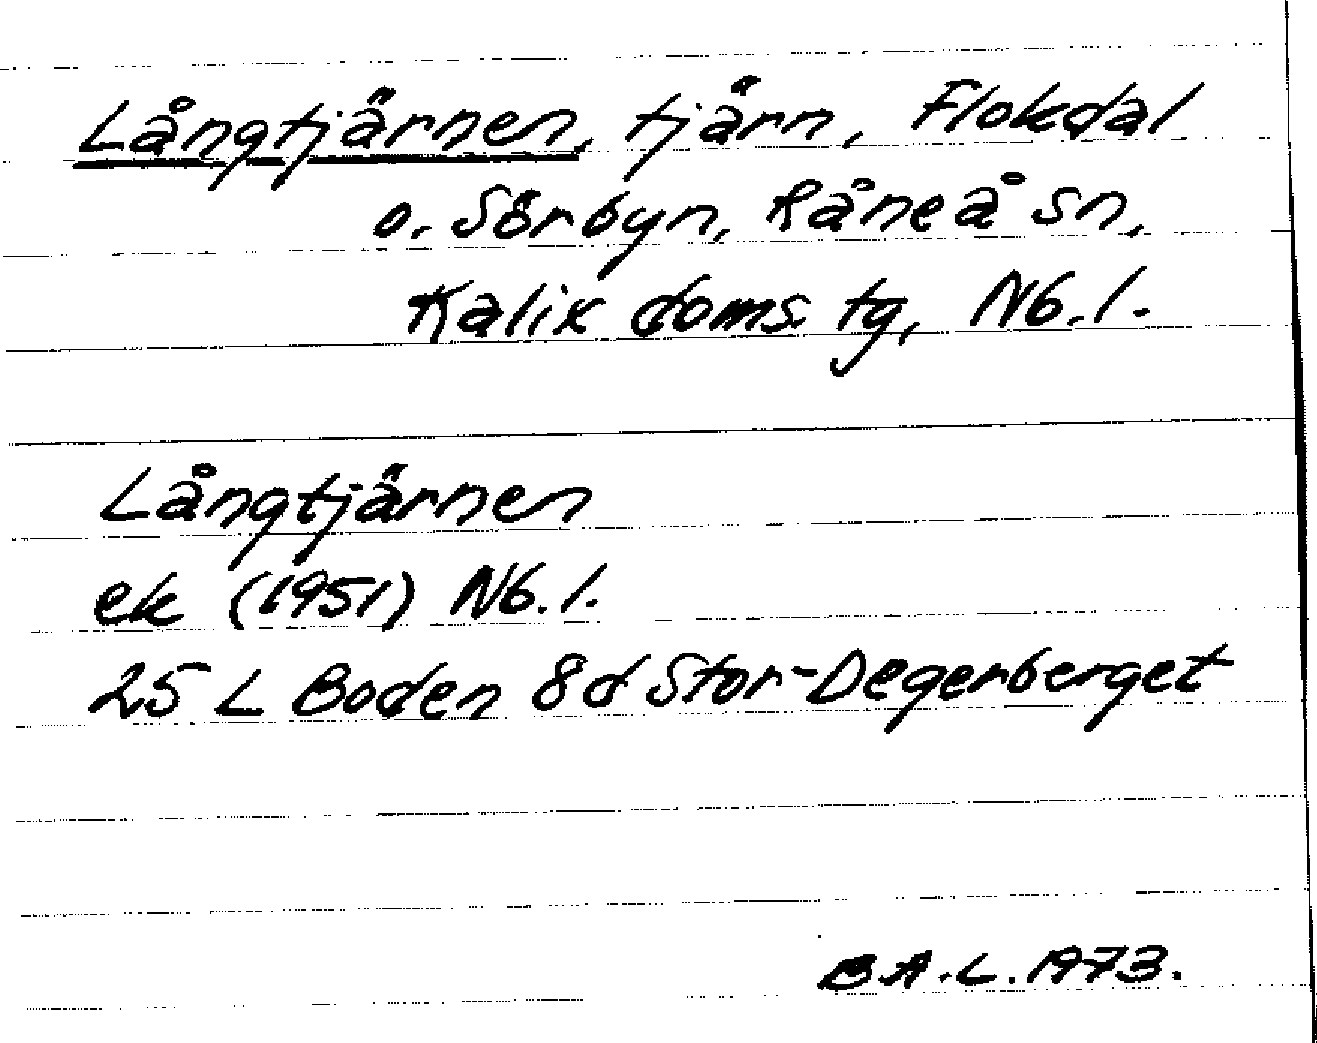 Långtjärnen, tjärn, Flokdal
o. Sörbyn, Råneå sn,
Kalix doms. tg, Nb. l.
Långtjärnen
ek (1951) Nb. l.
25 L Boden 8d Stor-Degerberget
B A. L. 1973.